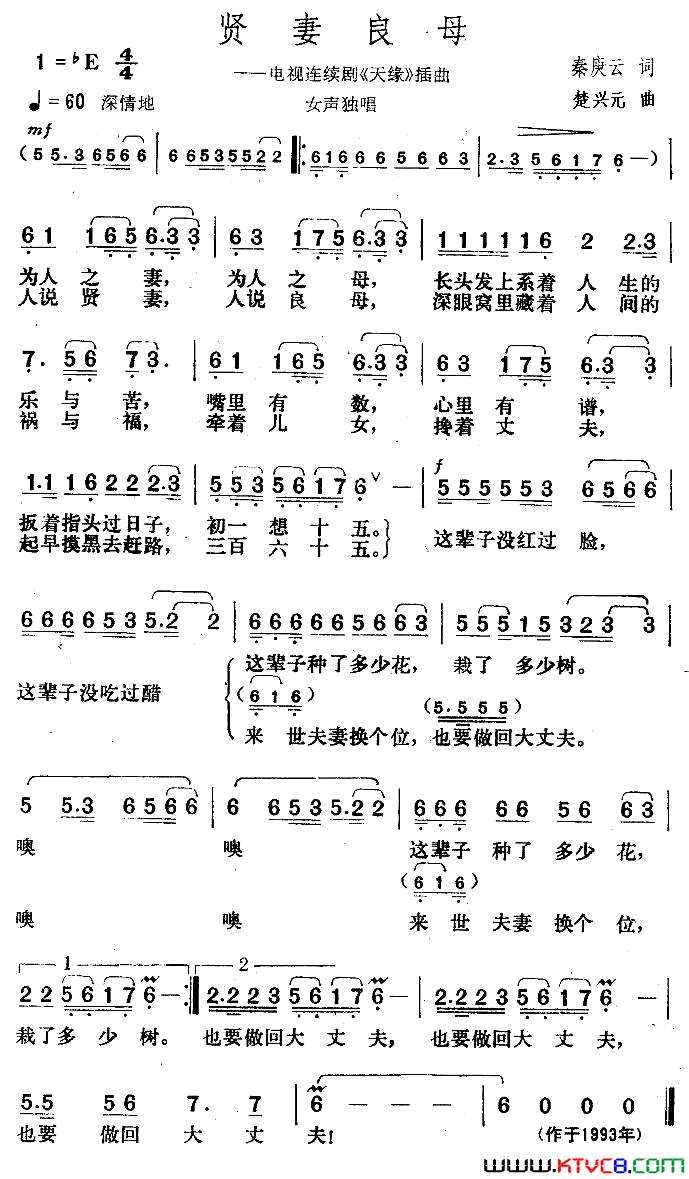 贤妻良母
1=♭E 4/4
——电视连续剧《天缘》插曲
秦庚云 词
♩=60 深情地
女声独唱
楚兴元 曲
mf
(5 5.3 6566 | 6 6535522 |: 6 1 6 6 6 5 6 6 3 | 2.3 5 6 1 7 6 —)
6 1 1 6 5 6.3 3 | 6 3 1 7 5 6.3 3 | 1 1 1 1 1 1 6 2 2.3
为人之妻, 为人之母, 长头发上系着人生的
人说贤妻, 人说良母, 深眼窝里藏着人间的
7. 5 6 7 3. | 6 1 1 6 5 6.3 3 | 6 3 1 7 5 6.3 3
乐与苦, 嘴里有数, 心里有谱,
祸与福, 牵着儿女, 搀着丈夫,
1.1 1 6 2 2 2.3 | 5 5 3 5 6 1 7 6 ∨ — | f 5 5 5 5 5 5 3 6 5 6 6
扳着指头过日子, 初一想十五。 这辈子没红过脸,
起早摸黑去赶路, 三百六十五。
6 6 6 6 6 5 3 5.2 2 | 6 6 6 6 6 5 6 6 3 | 5 5 5 1 5 3 2 3 3
这辈子没吃过醋 这辈子种了多少花, 栽了多少树。
(6 1 6) (5.5 5 5)
来世夫妻换个位, 也要做回大丈夫。
5 5.3 6 5 6 6 | 6 6 5 3 5.2 2 | 6 6 6 6 6 5 6 6 3
噢 噢 这辈子种了多少花,
(6 1 6)
噢 噢 来世夫妻换个位,
1 2
2 2 5 6 1 7 6 — :| 2.2 2 3 5 6 1 7 6 — | 2.2 2 3 5 6 1 7 6 —
栽了多少树。 也要做回大丈夫, 也要做回大丈夫,
5.5 5 6 7. 7 | 6 — — — | 6 0 0 0
也要做回大丈夫!
(作于1993年)
www.KTVC8.com